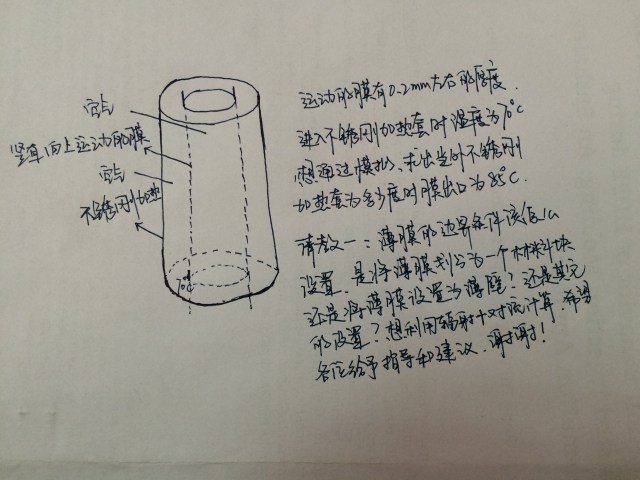 空气
竖直向上运动的膜
空气
不锈刚加热
70℃
运动的膜有0.2mm左右的厚度.
进入不锈刚加热套时温度为70℃
想通过模拟、求出当外不锈刚
加热套为多少度时膜出口为85℃.
请教一:薄膜的边界条件该怎么
设置.是将薄膜划分为一个材料块
还是将薄膜设置为薄壁?还是其它
的设置?想利用辐射+对流计算.希望
各位给予指导和建议.谢谢!